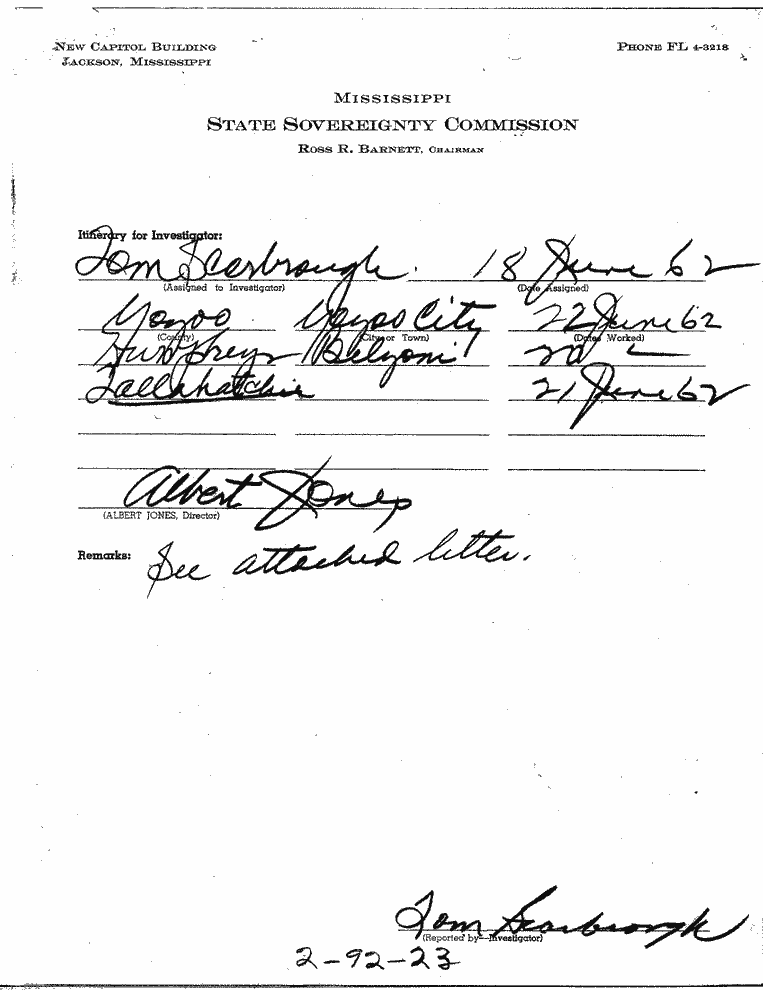 New Capitol Building
Jackson, Mississippi
Phone FL 4-3218
Mississippi
State Sovereignty Commission
Ross R. Barnett, Chairman
Itinerary for Investigator:
Tom Scarbrough. 18 June 62
(Assigned to Investigator) (Date Assigned)
Yazoo Yazoo City 22 June 62
(County) (City or Town) (Dates Worked)
Humphreys Belzoni
Tallahatchie 21 June 62
Albert Jones
(ALBERT JONES, Director)
Remarks: See attached letter.
Tom Scarbrough
(Reported by—Investigator)
2-92-23